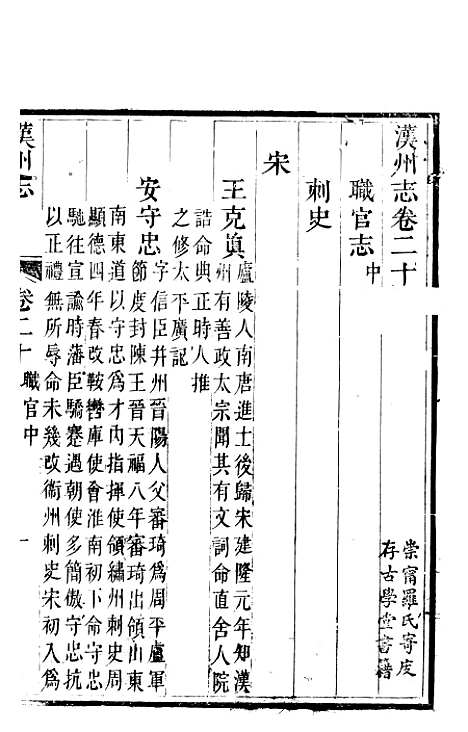 漢州志卷二十
職官志中
崇甯羅氏寄度
存古學堂書籍
刺史
宋
王克眞廬陵人南唐進士後歸宋建隆元年知漢
州有善政太宗聞其有文詞命直舍人院
誥命典正時人推
之修太平廣記
安守忠字信臣幷州晉陽人父審琦爲周平盧軍
節度封陳王晉天福八年審琦出領山東
南東道以守忠爲才內指揮使領繡州刺史周
顯德四年春改鞍轡庫使會淮南初下命守忠
馳往宣諭時藩臣驕蹇遇朝使多簡傲守忠抗
以正禮無所辱命未幾改衛州刺史宋初入爲
漢州志
卷二十
職官中
一